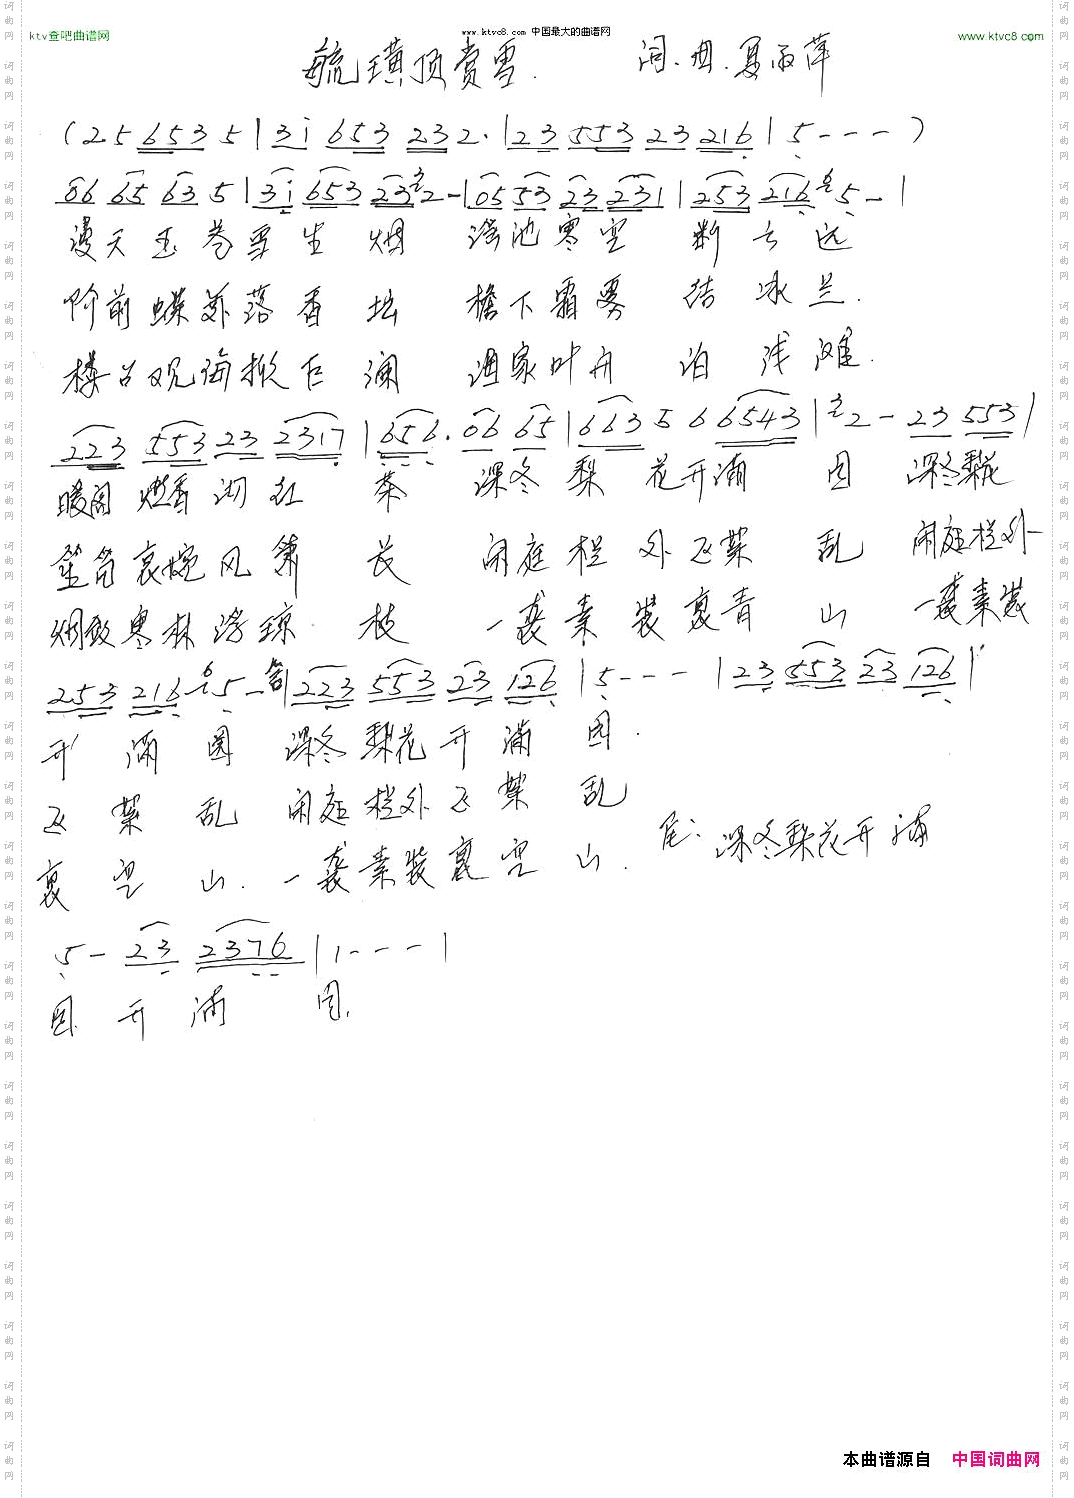 ktv查吧曲谱网
www.ktvc8.com 中国最大的曲谱网
www.ktvc8.com
毓璜顶赏雪. 词.曲.夏雨萍
(2 5 6 5 3 5 | 3 i 6 5 3 2 3 2. | 2 3 5 5 3 2 3 2 1 6 | 5 - - - )
0 6 6 5 6 3 5 | 3 i 6 5 3 2 3 3 2 - | 0 5 5 3 2 3 2 3 1 | 2 5 3 2 1 6 6 5 - |
漫天玉卷雪生烟 瑶池寒空 断云远
阶前蝶衣落香坛 檐下霜雾 结冰兰.
楼台观海掀巨澜 渔家叶舟 泊浅滩.
2 2 3 5 5 3 2 3 2 3 1 7 | 6 5 6. 0 6 6 5 | 6 6 3 5 6 6 5 4 3 | 3 2 - 2 3 5 5 3 |
暖阁燃香沏红茶 深冬梨花开满园 深冬梨花
笙笛哀婉风箫长 闲庭栏外飞絮乱 闲庭栏外
烟敛寒林浮琼枝 一袭素装裹青山 一袭素装
2 5 3 2 1 6 6 i 5 - | 2 2 3 5 5 3 2 3 1 2 6 | 5 - - - | 2 3 5 5 3 2 3 1 2 6 |
开满园 深冬梨花开满园.
飞絮乱 闲庭栏外飞絮乱
裹空山. 一袭素装裹空山. 尾: 深冬梨花开满
5 - 2 3 2 3 7 6 | 1 - - - |
园 开满园.
本曲谱源自 中国词曲网